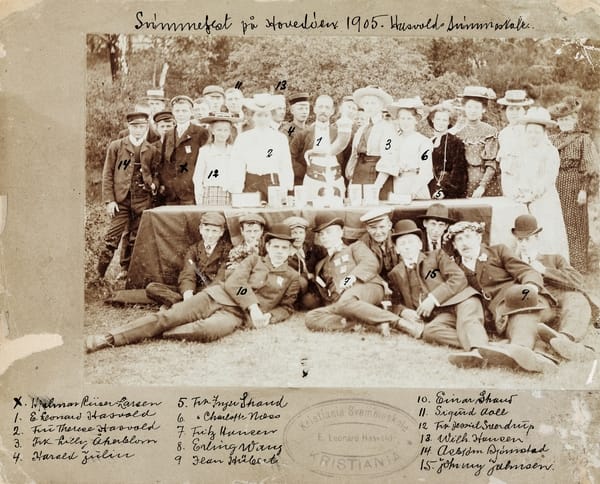 Svømmefest på Hovedøen 1905. Hasvold Svømmeskole.
11 13
14 x 12 2 4 1 3 6 5
10 7 15 9
X. Hjalmar Riiser Larsen
1. E Leonard Hasvold
2. Fru Therese Hasvold
3. Frk Lilly Akerblom
4. Harald Julin
5. Frk Inger Skand
6 " Charlotte Næss
7 Fritz Hansen
8 Erling Wang
9 Jean
10. Einar Skand
11. Sigurd Aall
12 Frk Sverdrup
13 Wilh. Hansen
14 Asbjørn Bjørnstad
15 Johnny Jahnsen.
Kristiania Svømmeskole
E. Leonard Hasvold
KRISTIANIA